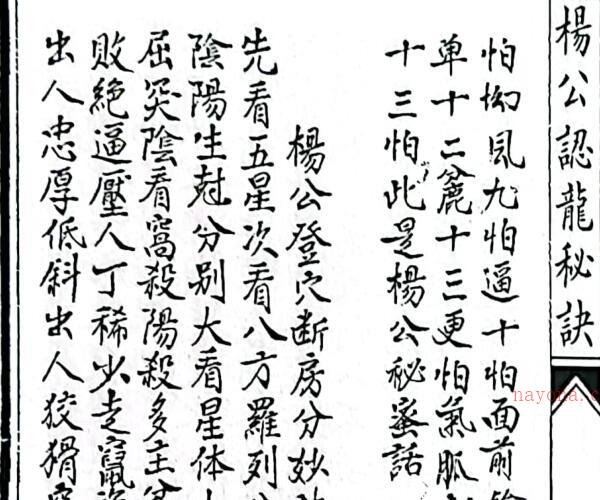 楊公認龍秘訣
怕坳風九怕逼十怕面前
单十二怕十三更怕氣脈
十三怕此是楊公秘蜜話
楊公登穴断房分妙
先看五星次看八方羅列
陰陽生尅分别大看星体
屈突陰看窩殺陽殺多主
敗絶逼壓人丁稀少走竄
出人忠厚低斜出人狡猾
nayona.